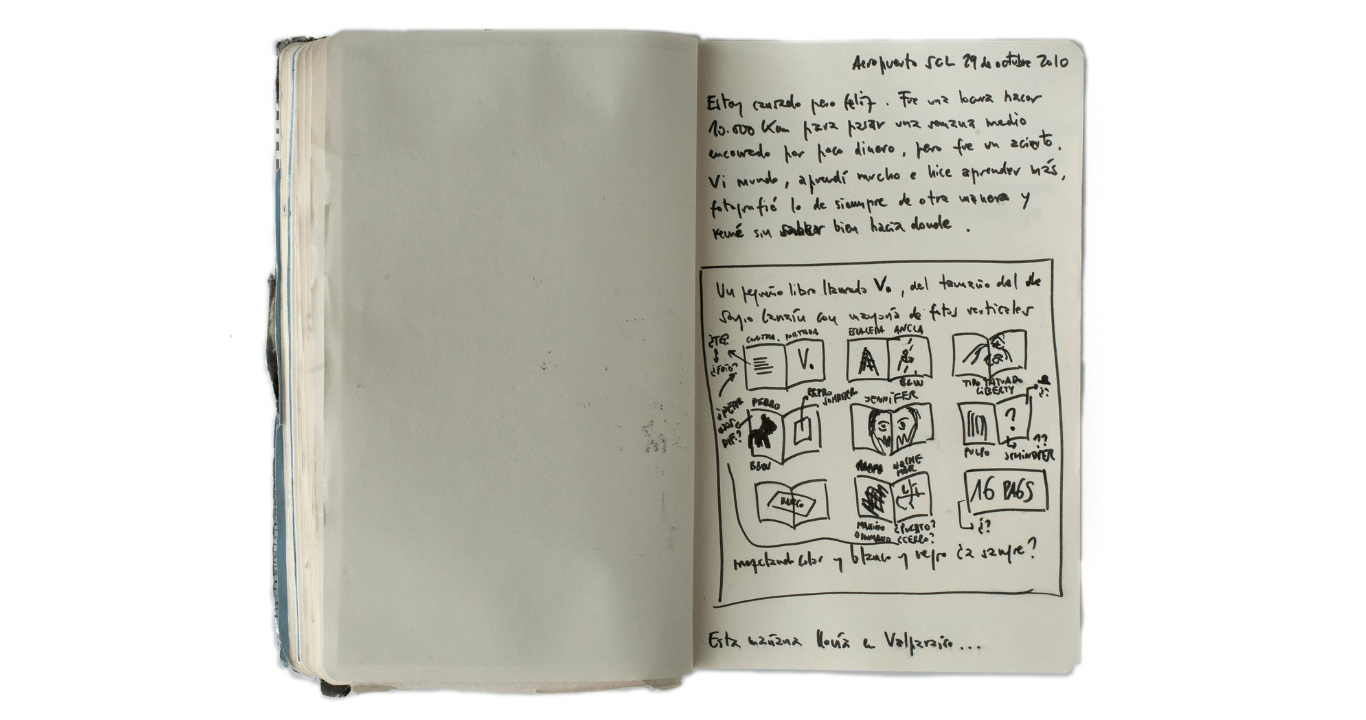 Aeropuerto SCL 29 de octubre 2010
Estoy cansado pero feliz. Fue una locura hacer
10.000 Km para pasar una semana medio
encerrado por poco dinero, pero fue un acierto.
Vi mundo, aprendí mucho e hice aprender más,
fotografié lo de siempre de otra manera y
remé sin saber bien hacia donde.
Un pequeño libro llamado V., del tamaño del de
Sergio Larraín con mayoría de fotos verticales
CONTRA. PORTADA
ESCALERA ANCLA
¿TEXT?
¿FOTO?
V.
B&W
TIPO TATUADO
LIBERTY
PERRO
RETRO
SOMBRERO
JENNIFER
?
¿?
B&W
PULPO
??
SCHINDLER
NOCHE
MAR
BARCO
16 PAGS
MARINO
¿PUERTO?
¿CERRO?
¿?
mezclando color y blanco y negro ¿a sangre?
Esta mañana llovía en Valparaíso...